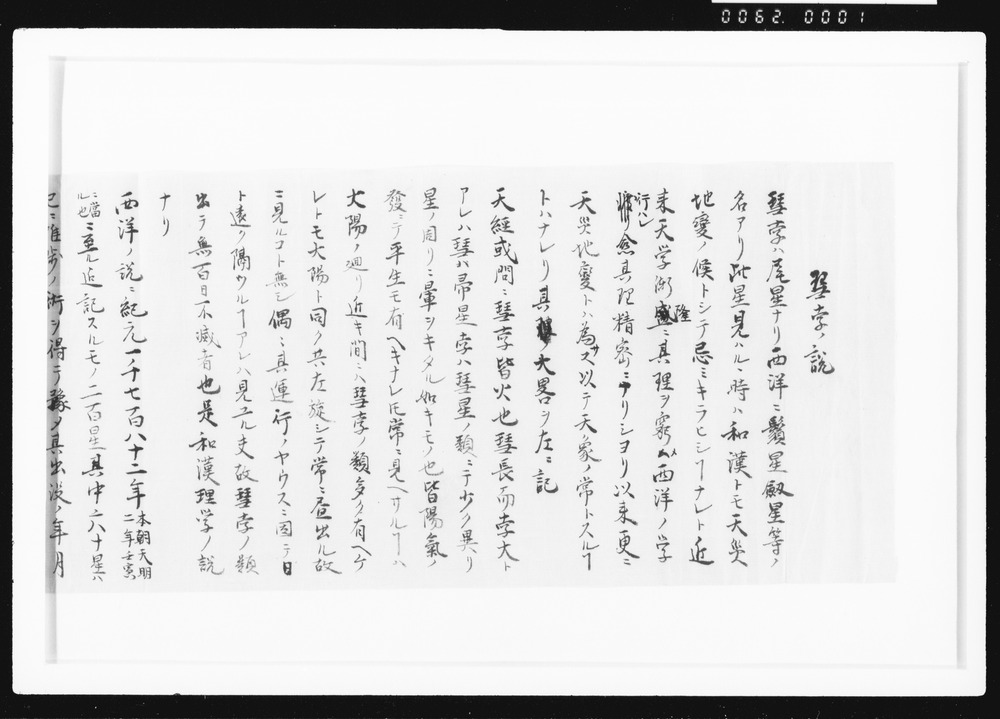 0062.0001
彗孛ノ説
彗孛ハ尾星ナリ西洋ニ鬚星劔星等ノ
名アリ此星見ハルヽ時ハ和漢トモ天災
地變ノ候トシテ忌ミキラヒシヿナレト近
来天学漸隆ニ其理ヲ窮メ西洋ノ学
行ハレ愈其理精密ニナリシヨリ以来更ニ
天災地變トハ為サス以テ天象ノ常トスルヿ
トハナレリ其大畧ヲ左ニ記
天經或問ニ彗孛皆火也彗長而孛大ト
アレハ彗ハ帚星孛ハ彗星ノ類ニテ少ク異リ
星ノ周リニ暈ヲキタル如キモノ也皆陽氣ノ
發ニテ平生モ有ヘキナレ𪜈常ニ見ヘサルヿハ
大陽ノ廻リ近キ間ニハ彗孛ノ類多ク有ヘケ
レトモ大陽ト同ク共左旋シテ常ニ昼出ル故
ニ見ルコト無シ偶ニ其運行ノヤウスニ因テ日
ト遠ク隔ツルヿアレハ見ユル夫故彗孛ノ類
出テ無百日不滅者也是和漢理学ノ説
ナリ
西洋ノ説ニ紀元一千七百八十二年本朝天明二年壬寅
ニ當ル也ニ至ル迄記スルモノ二百星其中六八十星ハ
已ニ推歩ノ術ヲ得テ豫メ其出没ノ年月